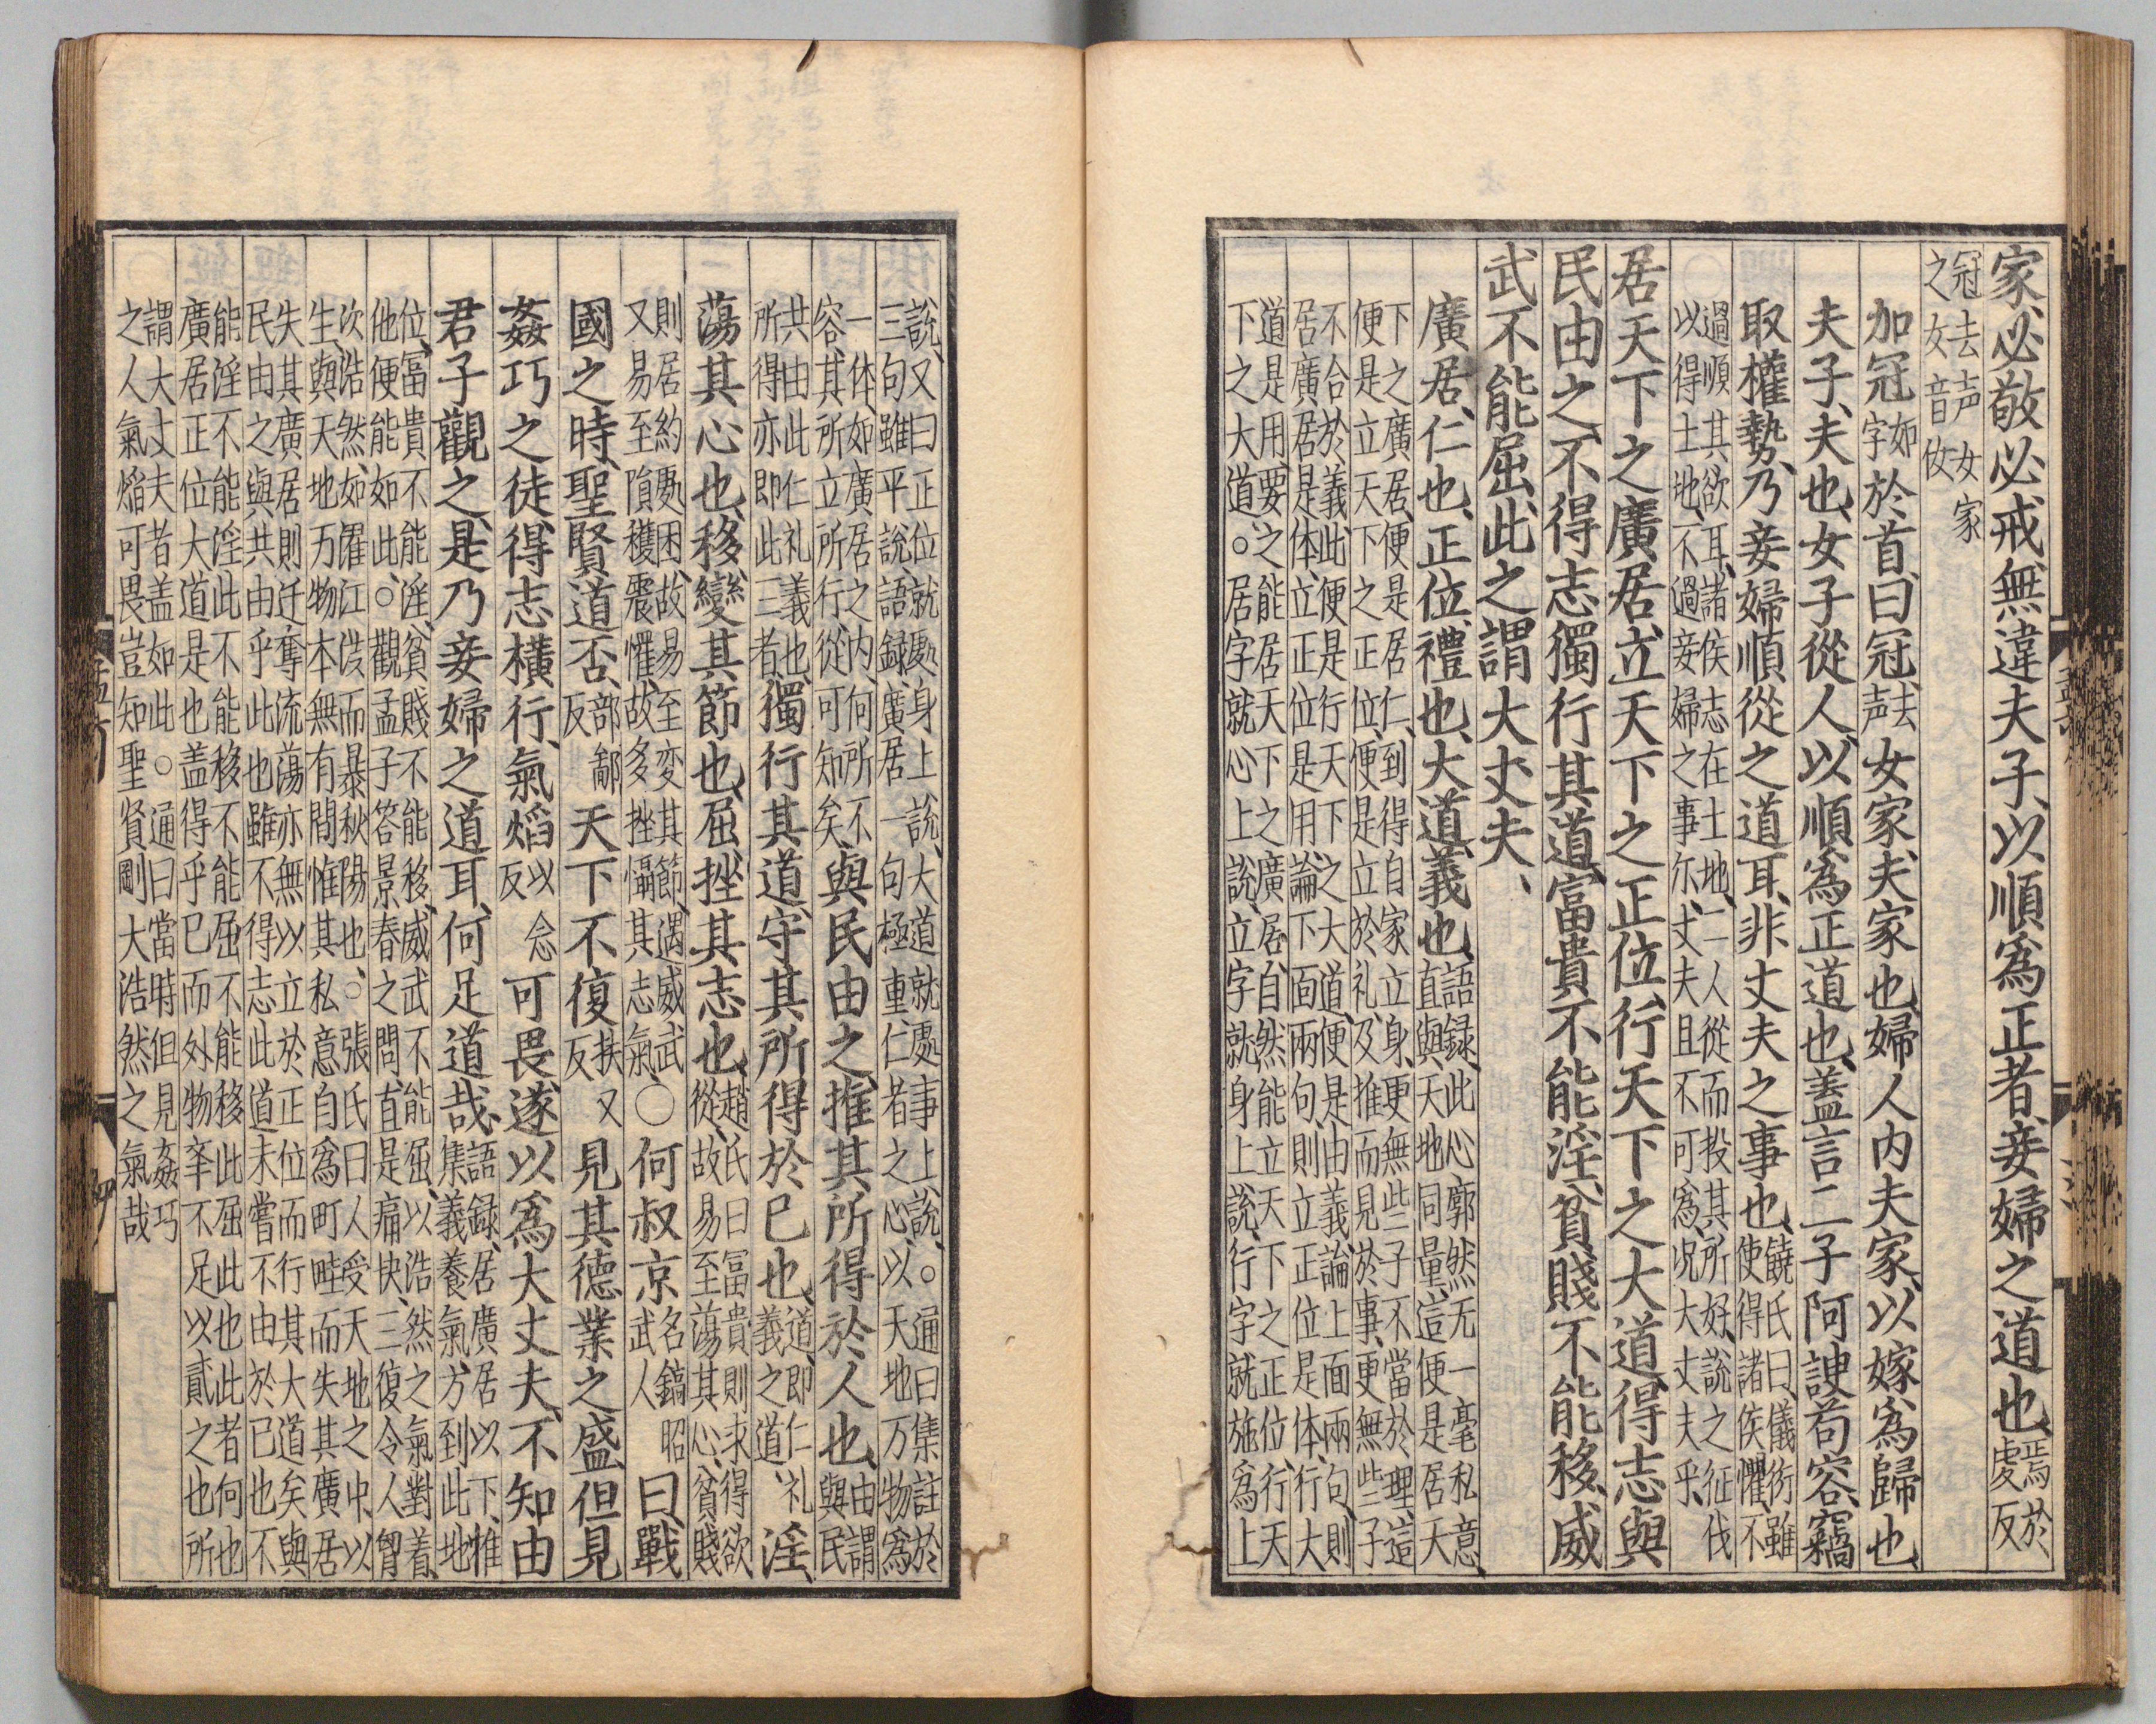 家、必敬必戒、無違夫子、以順爲正者、妾婦之道也、焉於虔反
冠去声女家
之女音汝
加冠如字於首、曰冠、去声女家、夫家也、婦人内夫家、以嫁爲歸也、
夫子、夫也、女子從人、以順爲正道也、蓋言二子阿諛苟容、竊
取權勢、乃妾婦順從之道耳、非丈夫之事也、饒氏曰、儀衍雖使得諸侯懼、不
過順其欲耳、諸侯志在土地、二人從而投其所好、説之征伐
以得土地、不過妾婦之事尓、丈夫且不可爲、况大丈夫乎、
居天下之廣居、立天下之正位、行天下之大道、得志與
民由之、不得志獨行其道、富貴不能淫、貧賤不能移、威
武不能屈、此之謂大丈夫、
廣居、仁也、正位、禮也、大道、義也、語録、此心廓然无一毫私意、直與天地同量、這便是居天
下之廣居、便是居仁、到得自家立身、更無些子不當於理、這
便是立天下之正位、便是立於礼、及推而見於事、更無些子
不合於義、此便是行天下之大道、便是由義、論上面兩句、則
居廣居是体、立正位是用、論下面兩句、則立正位是体、行大
道是用、要之能居天下之廣居、自然能立天下之正位、行天
下之大道。○居字就心上説、立字就身上説、行字就施爲上
説、又曰正位就處身上説、大道就處事上説、○通曰集註於
三句雖平説、語録廣居一句極重、仁者之心、以天地万物爲
一体、如廣居之内、何所不
容、其所立所行、從可知矣、與民由之、推其所得於人也、由謂與民
共由此仁礼義也、
所得亦即此三者、獨行其道、守其所得於已也、道、即仁、礼、義之道、淫、
蕩其心也、移、變其節也、屈、挫其志也、趙氏曰富貴則求得欲從、故易至蕩其心、貧賤
則居約處困、故易至変其節、遇威武
又易至隕穫震懼、故多挫懾其志氣、○何叔京名鎬昭武人曰、戰
國之時、聖賢道否、部鄙反天下不復扶又反見其德業之盛、但見
姦巧之徒、得志横行、氣焰以念反可畏、遂以爲大丈夫、不知由
君子觀之、是乃妾婦之道耳、何足道哉、語録、居廣居以下、推集義養氣、方到此地
位、富貴不能淫、貧賤不能移、威武不能屈、以浩然之氣對着、
他便能如此、○觀孟子答景春之問、直是痛快、三復令人胷
次浩然、如濯江漢而暴秋陽也、○張氏曰人受天地之中、以
生、與天地万物本無有間、惟其私意自爲町畦、而失其廣居
失其廣居則迁奪流蕩、亦無以立於正位、而行其大道矣、與
民由之、與共由乎此也、雖不得志、此道未嘗不由於已也、不
能淫、不能淫此、不能移、不能屈、不能移此屈此也、此者何也
廣居正位大道是也、盖得乎已、而外物率不足以貳之也、所
謂大丈夫者盖如此○通曰當時但見姦巧
之人氣焰可畏、豈知聖賢剛大浩然之氣哉